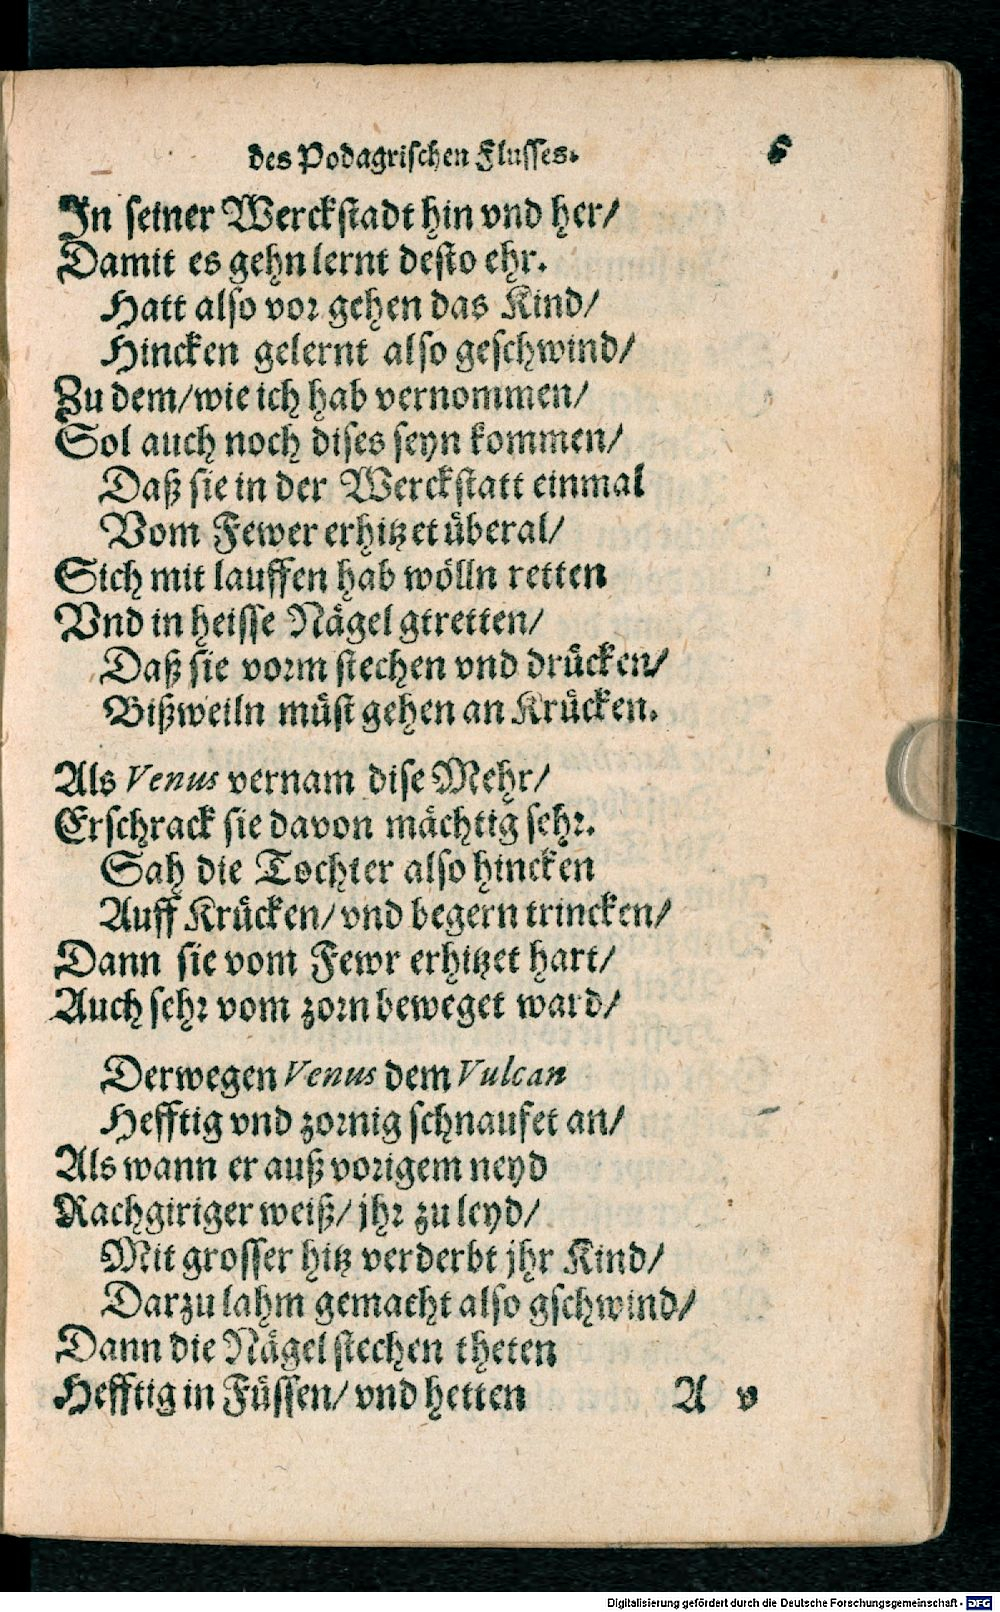 des Podagrischen Flusses.
In seiner Werckstadt hin vnd her/
Damit es gehn lernt desto ehr.
Hatt also vor gehen das Kind/
Hincken gelernt also geschwind/
Zu dem/ wie ich hab vernommen/
Sol auch noch dises seyn kommen/
Daß sie in der Werckstatt einmal
Vom Fewer erhitzet überal/
Sich mit lauffen hab wölln retten
Vnd in heisse Nägel gtretten/
Daß sie vorm stechen vnd drücken/
Bißweiln müst gehen an Krücken.
Als Venus vernam dise Mehr/
Erschrack sie davon mächtig sehr.
Sah die Tochter also hincken
Auff Krücken/ vnd begern trincken/
Dann sie vom Fewr erhitzet hart/
Auch sehr vom zorn beweget ward/
Derwegen Venus dem Vulcan
Hefftig vnd zornig schnaufet an/
Als wann er auß vorigem neyd
Rachgiriger weiß/ jhr zu leyd/
Mit grosser hitz verderbt jhr Kind/
Darzu lahm gemacht also gschwind/
Dann die Nägel stechen theten
Hefftig in Füssen/ vnd hetten
A v
Digitalisierung gefördert durch die Deutsche Forschungsgemeinschaft - DFG